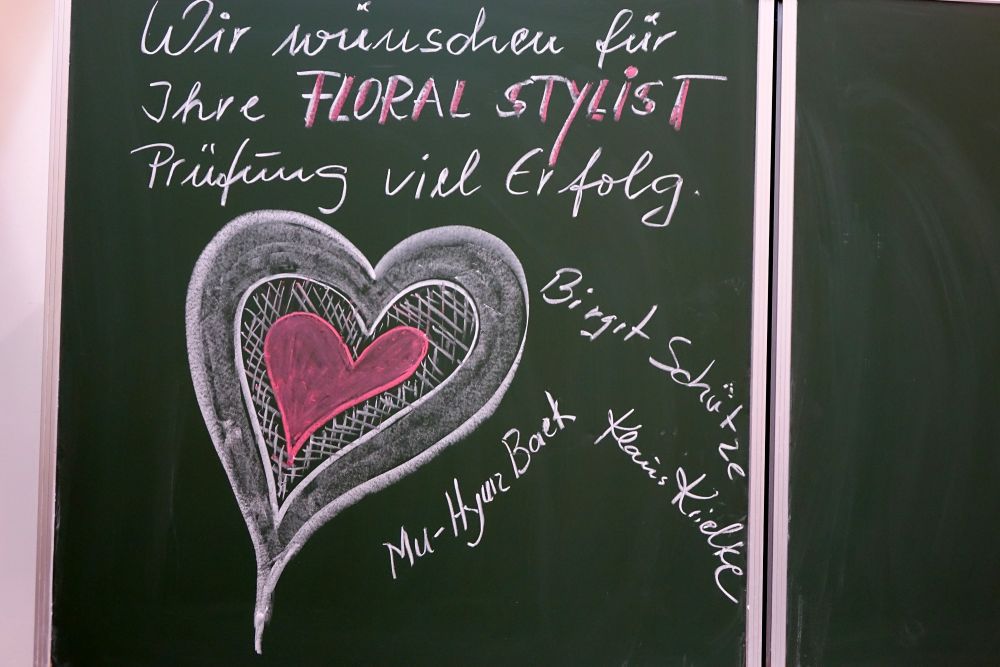 Wir wünschen für
Ihre FLORAL STYLIST
Prüfung viel Erfolg.
Birgit Schütze
Klaus Kielke
Mu-Hyun Baek